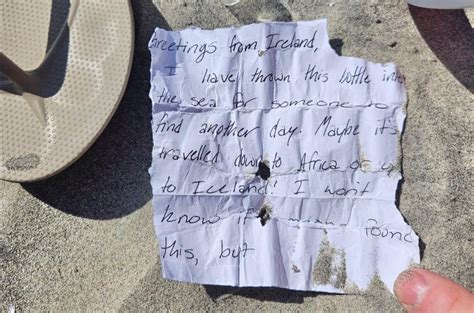 Greetings from Ireland,
I have thrown this bottle into
the sea for someone to
find another day. Maybe it's
travelled down to Africa or up
to Iceland! I won't
know if found
this, but